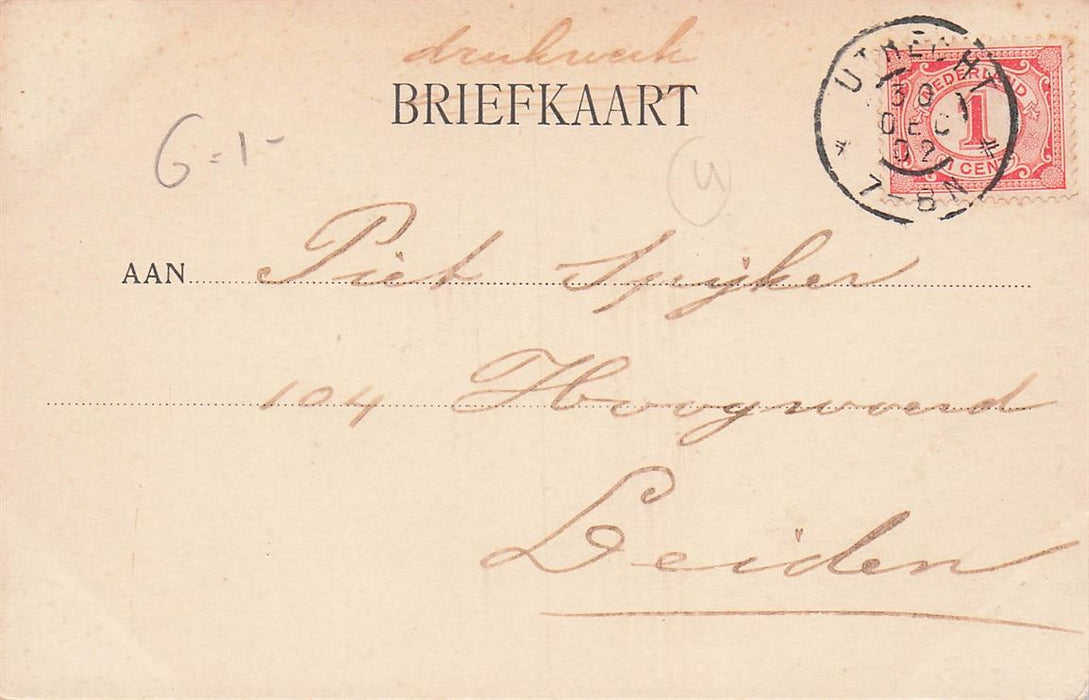 drukwerk
BRIEFKAART
UTRECHT
30
DEC
02
7-8N
NEDERLAND
1
1 CENT
G=1-
4
AAN Piet Spijker
104 Hoogewoerd
Leiden